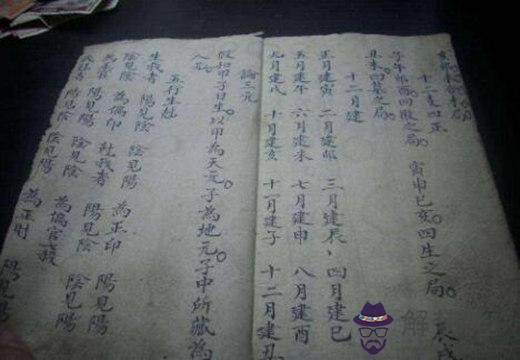 十二支四正
子午卯酉。四敗之局。 寅申巳亥。四生之局。 辰戌
丑未。四墓之局。
十二月建
正月建寅 二月建卯 三月建辰, 四月建巳
五月建午 六月建未 七月建申 八月建酉
九月建戌 十月建亥 十一月建子 十二月建丑
論三元
假如甲子日生。以甲為天元。子為地元。子中所藏為
人元。
五行生尅
生我者 陽見陰 陰見陽 為正印 陽見陽
陰見陰 為偏印 尅我者 陽見陰 陰見陽
為正官 陽見陽 陰見陰 為偏官
我尅者 陽見陰 陰見陽 為正財 陽見陽